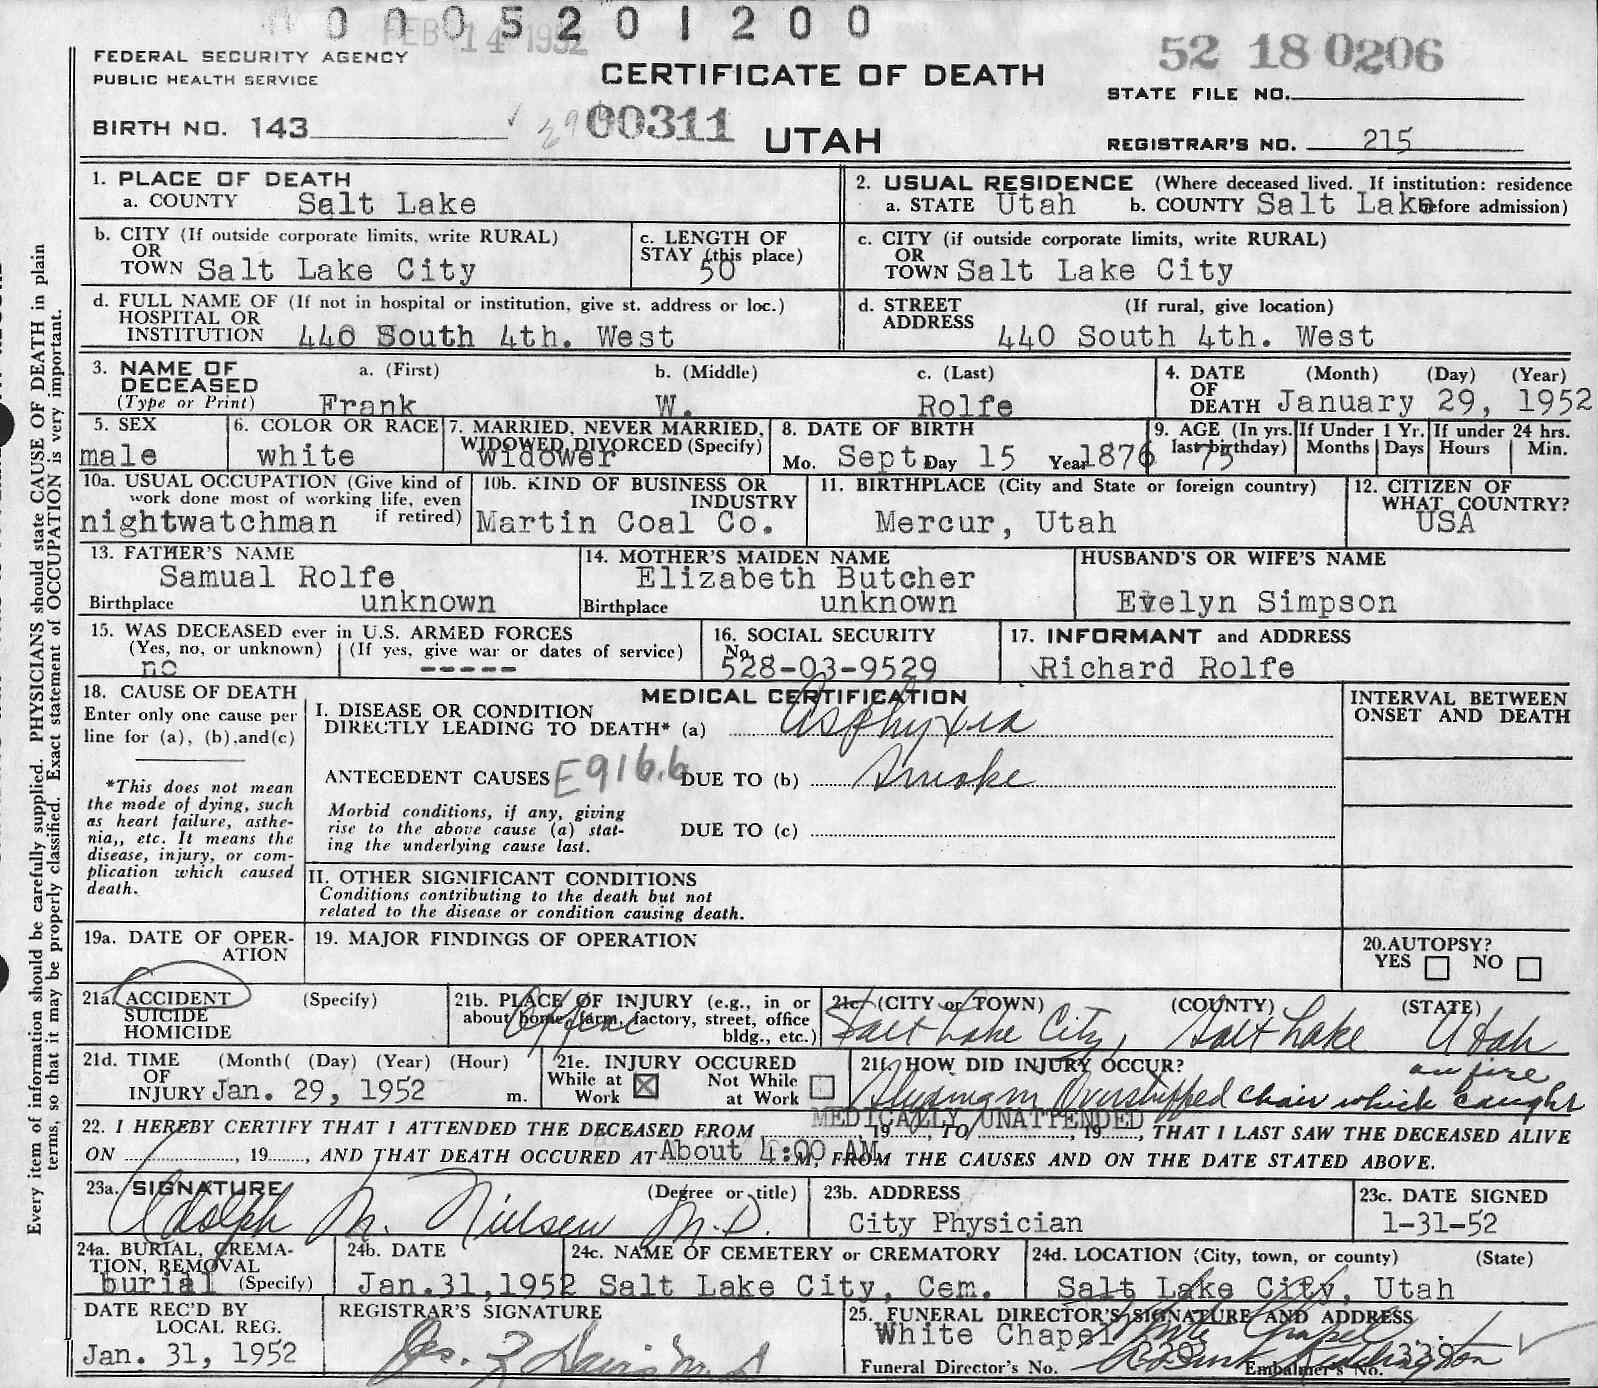 0 0 0 5 2 0 1 2 0 0
FEB 14 1952
52 18 0206
FEDERAL SECURITY AGENCY
PUBLIC HEALTH SERVICE
CERTIFICATE OF DEATH
STATE FILE NO.
BIRTH NO. 143
00311
UTAH
REGISTRAR'S NO. 215
1. PLACE OF DEATH
a. COUNTY Salt Lake
2. USUAL RESIDENCE (Where deceased lived. If institution: residence before admission)
a. STATE Utah b. COUNTY Salt Lake
b. CITY (If outside corporate limits, write RURAL)
OR
TOWN Salt Lake City
c. LENGTH OF
STAY (this place)
50
c. CITY (if outside corporate limits, write RURAL)
OR
TOWN Salt Lake City
d. FULL NAME OF (If not in hospital or institution, give st. address or loc.)
HOSPITAL OR
INSTITUTION 440 South 4th. West
d. STREET (If rural, give location)
ADDRESS 440 South 4th. West
3. NAME OF DECEASED
(Type or Print)
a. (First) b. (Middle) c. (Last)
Frank W. Rolfe
4. DATE OF DEATH (Month) (Day) (Year)
January 29, 1952
5. SEX
male
6. COLOR OR RACE
white
7. MARRIED, NEVER MARRIED,
WIDOWED, DIVORCED (Specify)
widower
8. DATE OF BIRTH
Mo. Sept. Day 15 Year 1876
9. AGE (In yrs. last birthday)
75
If Under 1 Yr.
Months Days
If under 24 hrs.
Hours Min.
10a. USUAL OCCUPATION (Give kind of
work done most of working life, even
if retired)
nightwatchman
10b. KIND OF BUSINESS OR
INDUSTRY
Martin Coal Co.
11. BIRTHPLACE (City and State or foreign country)
Mercur, Utah
12. CITIZEN OF
WHAT COUNTRY?
USA
13. FATHER'S NAME
Samual Rolfe
Birthplace unknown
14. MOTHER'S MAIDEN NAME
Elizabeth Butcher
Birthplace unknown
HUSBAND'S OR WIFE'S NAME
Evelyn Simpson
15. WAS DECEASED ever in U.S. ARMED FORCES
(Yes, no, or unknown) (If yes, give war or dates of service)
no -----
16. SOCIAL SECURITY
No.
528-03-9529
17. INFORMANT and ADDRESS
Richard Rolfe
18. CAUSE OF DEATH
Enter only one cause per
line for (a), (b),and(c)
*This does not mean
the mode of dying, such
as heart failure, asthe-
nia,, etc. It means the
disease, injury, or com-
plication which caused
death.
MEDICAL CERTIFICATION
I. DISEASE OR CONDITION
DIRECTLY LEADING TO DEATH* (a) Asphyxia
ANTECEDENT CAUSES E916.6 DUE TO (b) Smoke
Morbid conditions, if any, giving
rise to the above cause (a) stat-
ing the underlying cause last.
DUE TO (c)
II. OTHER SIGNIFICANT CONDITIONS
Conditions contributing to the death but not
related to the disease or condition causing death.
INTERVAL BETWEEN
ONSET AND DEATH
19a. DATE OF OPER-
ATION
19. MAJOR FINDINGS OF OPERATION
20. AUTOPSY?
YES NO
21a. ACCIDENT (Specify)
SUICIDE
HOMICIDE
21b. PLACE OF INJURY (e.g., in or
about home, farm, factory, street, office
bldg., etc.)
Office
21c. (CITY or TOWN) (COUNTY) (STATE)
Salt Lake City, Salt Lake Utah
21d. TIME (Month( (Day) (Year) (Hour)
OF
INJURY Jan. 29, 1952 m.
21e. INJURY OCCURED
While at Work Not While at Work
21f. HOW DID INJURY OCCUR?
on fire
chair which caught
22. I HEREBY CERTIFY THAT I ATTENDED THE DECEASED FROM MEDICALLY UNATTENDED 19......, TO ............, 19......, THAT I LAST SAW THE DECEASED ALIVE
ON ............, 19......, AND THAT DEATH OCCURED AT About 4:00 AM M, FROM THE CAUSES AND ON THE DATE STATED ABOVE.
23a. SIGNATURE (Degree or title)
Adolph M. Nielsen M.D.
23b. ADDRESS
City Physician
23c. DATE SIGNED
1-31-52
24a. BURIAL, CREMA-
TION, REMOVAL
burial (Specify)
24b. DATE
Jan.31,1952
24c. NAME OF CEMETERY or CREMATORY
Salt Lake City, Cem.
24d. LOCATION (City, town, or county) (State)
Salt Lake City, Utah
DATE REC'D BY
LOCAL REG.
Jan. 31, 1952
REGISTRAR'S SIGNATURE
25. FUNERAL DIRECTOR'S SIGNATURE AND ADDRESS
White Chapel
White Chapel
Funeral Director's No. Embalmer's No.
Every item of information should be carefully supplied. PHYSICIANS should state CAUSE OF DEATH in plain
terms, so that it may be properly classified. Exact statement of OCCUPATION is very important.